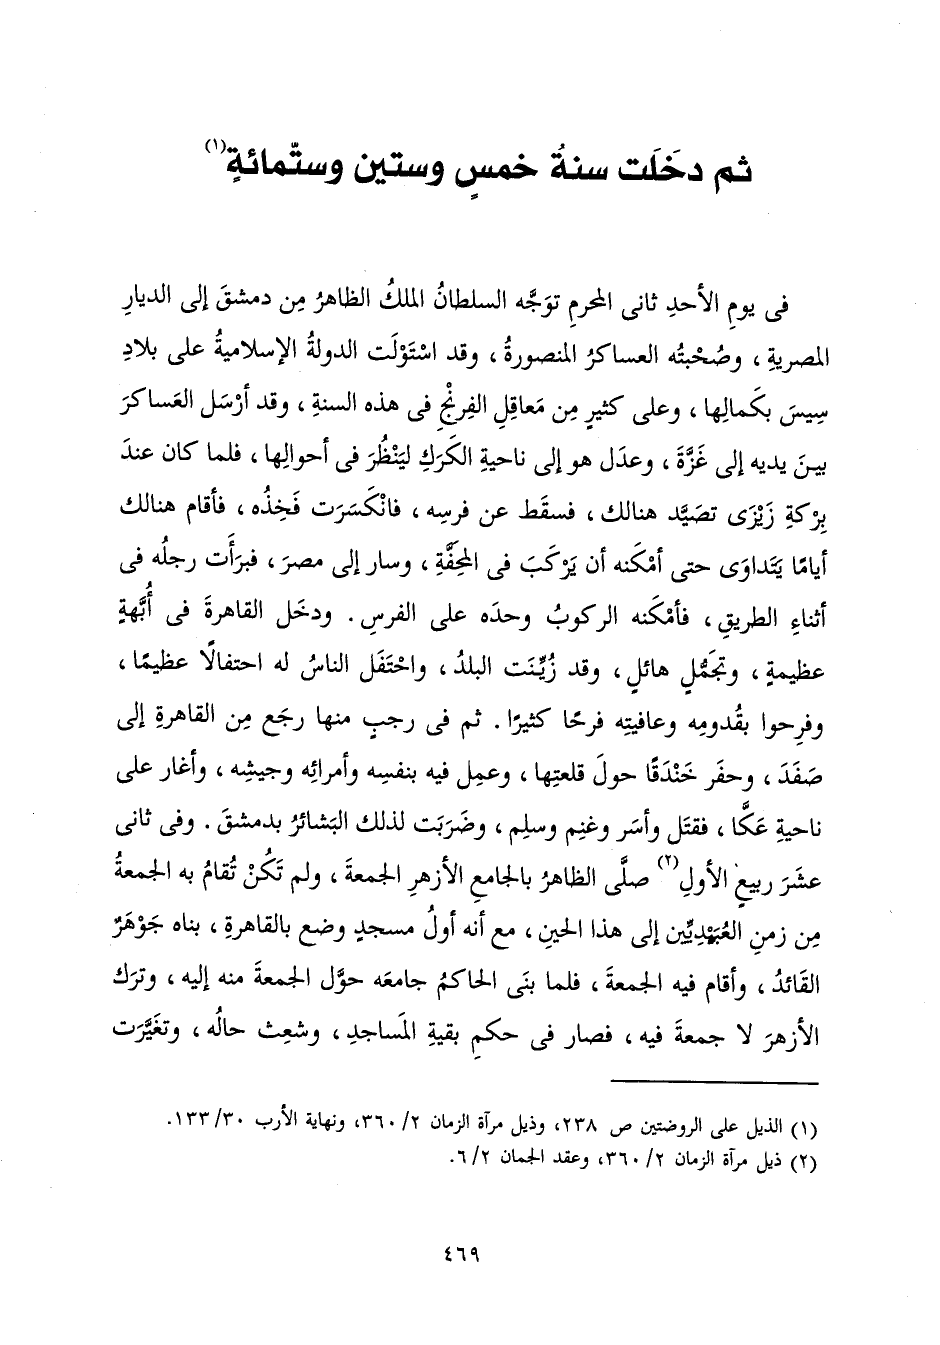 ثم دخَلَت سنةُ خمسٍ وستين وستّمائةٍ(١)
فى يومِ الأحدِ ثانى المحرمِ توَجَّه السلطانُ الملكُ الظاهرُ مِن دمشقَ إلى الديارِ
المصريةِ ، وصُحْبتُه العساكرُ المنصورةُ ، وقد اسْتَوْلَت الدولةُ الإسلاميةُ على بلادِ
سِيسَ بكَمالِها ، وعلى كثيرٍ مِن مَعاقِلِ الفِرنْجِ فى هذه السنةِ ، وقد أرْسَل العَساكرَ
بينَ يديه إلى غَزَّةَ ، وعدَل هو إلى ناحيةِ الكَرَكِ ليَنْظُرَ فى أحوالِها ، فلما كان عندَ
بِرْكةِ زَيْزَى تصَيَّد هنالك ، فسقَط عن فرسِه ، فانْكَسَرَت فَخِذُه ، فأقام هنالك
أيامًا يَتَداوَى حتى أمْكَنه أن يَرْكَبَ فى المِحَفَّةِ ، وسار إلى مصرَ ، فبرَأَت رجلُه فى
أثناءِ الطريقِ ، فأمْكَنه الركوبُ وحدَه على الفرسِ . ودخَل القاهرةَ فى أُبَّهةٍ
عظيمةٍ ، وتجَمُّلٍ هائلٍ ، وقد زُيِّنَت البلدُ ، واحْتَفَل الناسُ له احتفالًا عظيمًا ،
وفرِحوا بقُدومِه وعافيتِه فرحًا كثيرًا . ثم فى رجبٍ منها رجَع مِن القاهرةِ إلى
صَفَدَ ، وحفَر خَنْدَقًا حولَ قلعتِها ، وعمِل فيه بنفسِه وأمرائِه وجيشِه ، وأغار على
ناحيةِ عَكَّا ، فقتَل وأسَر وغنِم وسلِم ، وضَرَبَت لذلك البَشائرُ بدمشقَ . وفى ثانى
عشَرَ ربيعٍ الأولِ(٢) صلَّى الظاهرُ بالجامعِ الأزهرِ الجمعةَ ، ولم تَكُنْ تُقامُ به الجمعةُ
مِن زمنِ العُبَيْدِيِّين إلى هذا الحينِ ، مع أنه أولُ مسجدٍ وضع بالقاهرةِ ، بناه جَوْهَرٌ
القَائدُ ، وأقام فيه الجمعةَ ، فلما بنَى الحاكمُ جامعَه حوَّل الجمعةَ منه إليه ، وترَك
الأزهرَ لا جمعةَ فيه ، فصار فى حكمِ بقيةِ المَساجدِ ، وشعِث حالُه ، وتغَيَّرَت
(١) الذيل على الروضتين ص ٢٣٨، وذيل مرآة الزمان ٢/ ٣٦٠، ونهاية الأرب ٣٠/ ١٣٣.
(٢) ذيل مرآة الزمان ٢/ ٣٦٠، وعقد الجمان ٢/ ٦.
٤٦٩